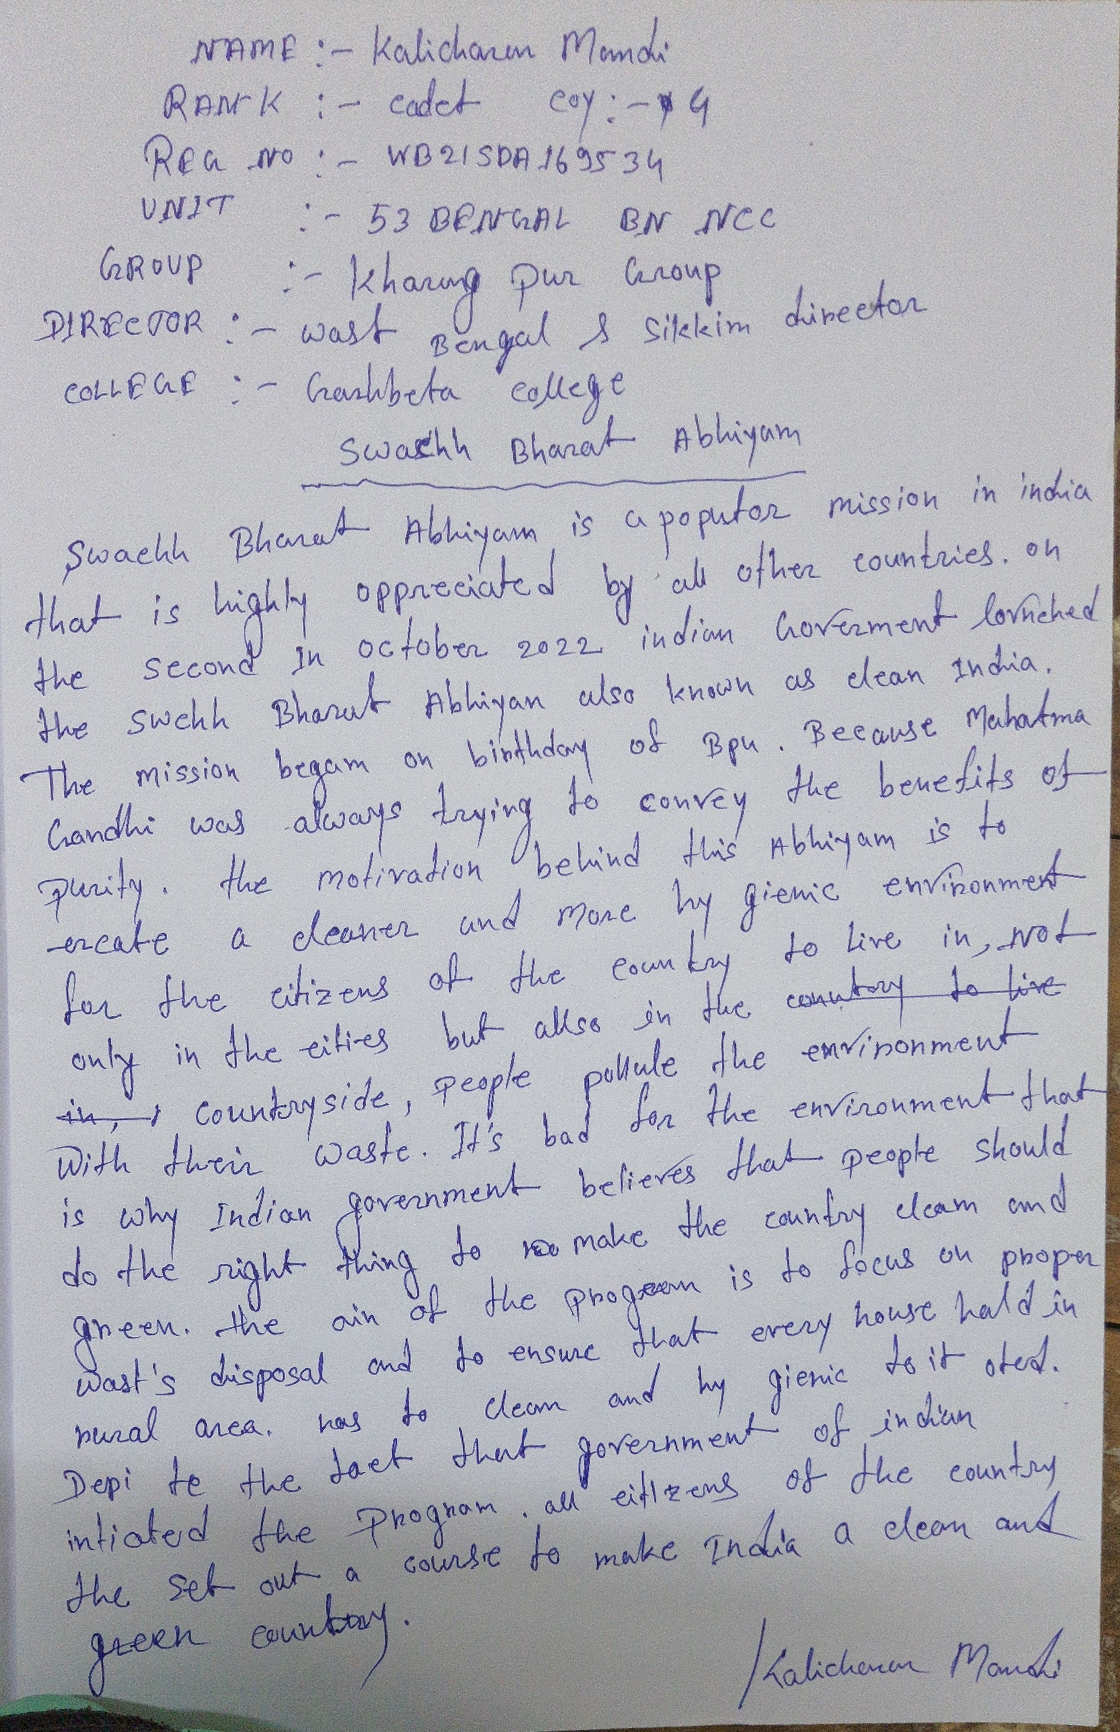 NAME :- Kalicharan Mandi
RANK :- cadet coy :- G
REG NO :- WB21SDA169534
UNIT :- 53 BENGAL BN NCC
GROUP :- Kharag pur Group
DIRECTOR :- wast Bengal & Sikkim director
COLLEGE :- Garhbeta college
Swachh Bharat Abhiyam
Swachh Bharat Abhiyam is a poputor mission in india
that is highly oppreciated by all other countries. on
the second in october 2022 indian Goverment lornched
the Swchh Bharat Abhiyan also known as clean India.
The mission begam on birthday of Bpu. Because Mahatma
Gandhi was always trying to convey the benefits of
purity. the motivation behind this Abhiyam is to
create a cleaner and more hy gienic environment
for the citizens of the country to live in, not
only in the cities but allso in the country to live
in, countryside, people pollule the environment
With their waste. It's bad for the environment that
is why Indian government believes that people should
do the right thing to make the country cleam and
green. the ain of the program is to focus on proper
wast's disposal and to ensure that every house hald in
rural area. has to clean and hy gienic to it oted.
Depi te the fact that government of indian
intiated the program. all citizens of the country
the set out a course to make India a clean and
green country.
Kalicharan Mandi